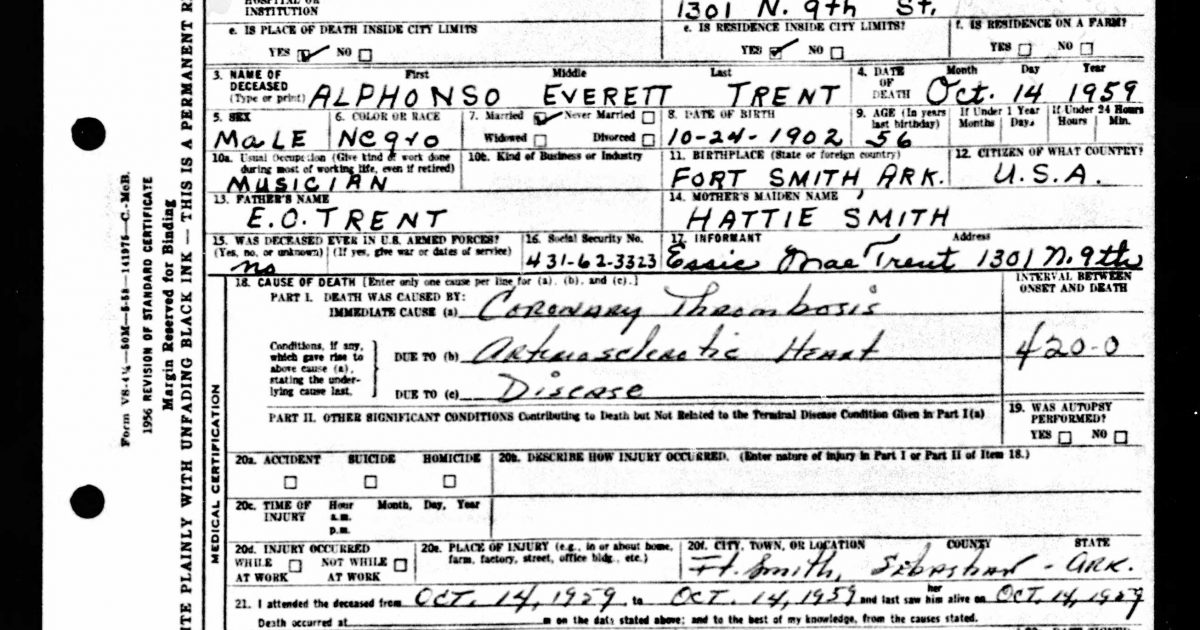 HOSPITAL OR
INSTITUTION
1301 N. 9th St.
e. IS PLACE OF DEATH INSIDE CITY LIMITS?
YES NO
e. IS RESIDENCE INSIDE CITY LIMITS?
YES NO
f. IS RESIDENCE ON A FARM?
YES NO
3. NAME OF DECEASED (Type or print)
First Middle Last
ALPHONSO EVERETT TRENT
4. DATE OF DEATH
Month Day Year
Oct. 14 1959
5. SEX
MaLE
6. COLOR OR RACE
Negro
7. Married Never Married
Widowed Divorced
8. DATE OF BIRTH
10-24-1902
9. AGE (In years last birthday)
56
If Under 1 Year
Months Days
If Under 24 Hours
Hours Min.
10a. Usual Occupation (Give kind of work done
during most of working life, even if retired)
MUSICIAN
10b. Kind of Business or Industry
11. BIRTHPLACE (State or foreign country)
FORT SMITH, ARK.
12. CITIZEN OF WHAT COUNTRY?
U.S.A.
13. FATHER'S NAME
E.O. TRENT
14. MOTHER'S MAIDEN NAME
HATTIE SMITH
15. WAS DECEASED EVER IN U.S. ARMED FORCES?
(Yes, no, or unknown) (If yes, give war or dates of service)
no
16. Social Security No.
431-62-3323
17. INFORMANT Address
Essie Mae Trent 1301 N. 9th
18. CAUSE OF DEATH [Enter only one cause per line for (a), (b), and (c).]
INTERVAL BETWEEN
ONSET AND DEATH
PART I. DEATH WAS CAUSED BY:
IMMEDIATE CAUSE (a) Coronary Thrombosis
Conditions, if any,
which gave rise to
above cause (a),
stating the under-
lying cause last.
DUE TO (b) Arteriosclerotic Heart
420-0
DUE TO (c) Disease
PART II. OTHER SIGNIFICANT CONDITIONS Contributing to Death but Not Related to the Terminal Disease Condition Given in Part I(a)
19. WAS AUTOPSY
PERFORMED?
YES NO
20a. ACCIDENT SUICIDE HOMICIDE
20b. DESCRIBE HOW INJURY OCCURRED. (Enter nature of injury in Part I or Part II of Item 18.)
20c. TIME OF INJURY
Hour Month, Day, Year
a.m.
p.m.
20d. INJURY OCCURRED
WHILE AT WORK NOT WHILE AT WORK
20e. PLACE OF INJURY (e.g., in or about home,
farm, factory, street, office bldg., etc.)
20f. CITY, TOWN, OR LOCATION COUNTY STATE
Ft. Smith, Sebastian - ARK.
21. I attended the deceased from OCT. 14, 1959 to OCT. 14, 1959 and last saw him her alive on OCT. 14, 1959
Death occurred at m on the date stated above; and to the best of my knowledge, from the causes stated.
Form VS-4¼—50M—5-58—141975—C.-McB.
1956 REVISION OF STANDARD CERTIFICATE
Margin Reserved for Binding
PLAINLY WITH UNFADING BLACK INK — THIS IS A PERMANENT
MEDICAL CERTIFICATION